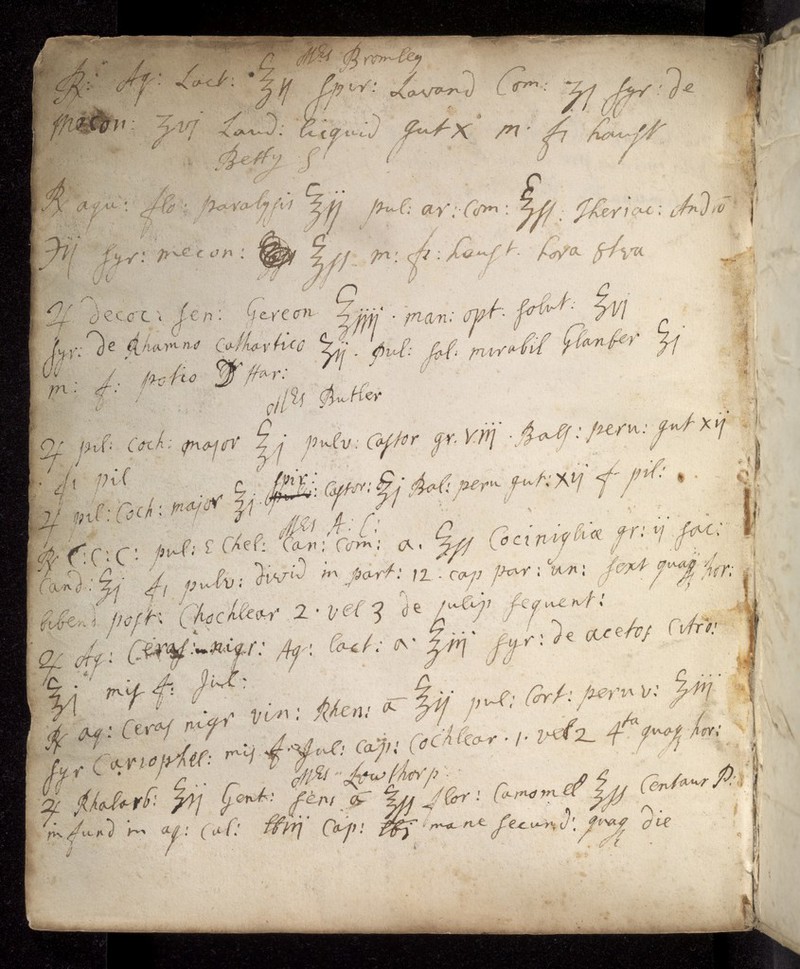 Mrs Bromley
℞: Aq: Lact: ℥ij Spir: Lavand Com: ʒj Syr: de
Mecon: ʒvj Laud: liquid gut X m. ft haust
Betty S
℞ aqu: flo: paralysis ℥ij pul: ar: Com: ℥ss. Theriac: And
℈ij Syr: mecon: ℥ss m: ft: haust. hora
♃ Decoc: Sen: Gereon ℥iiij. man: opt. solut: ℥vj
Syr: De Rhamno Cathartico ℥ij. Pul: Sal: mirabil Glauber ℥j
m: f: potio Har:
Mrs Butler
♃ pil: Coch: major ℥j pulv: Castor gr. viij. Bals: peru: gut xij
ft pil
♃ pil: Coch: major ℥j. spir: Castor: ℥j Bal: peru gut: xij f pil:
Mrs A: C:
℞ C: C: C: pul: E Chel: Can: Com: a. ℥ss Cocinigliæ gr: ij Sac:
Cand: ℥j ft pulv: Divid in part: 12. cap par: un: sext quaq hor:
bibend post: Chochlear 2. vel 3 de julip sequent:
♃ Aq: Ceras: nigr: Aq: lact: a. ℥iij Syr: de acetos Citro:
℥j mis f: Jul:
℞ aq: Ceras nigr vin: Rhen: a ℥ij pul: Cort: peruv: ℥iij
Syr Cariophel: mis f Jul: cap: Cochlear. 1. vel 2 4ta quaq hor:
Mrs Lowthorp
♃ Rhabarb: ℥ij Gent: Sens a ℥ss flor: Camomel ℥ss Centaur P:
infund in aq: Cal: ℔iij Cap: ℔j mane secund: quaq die